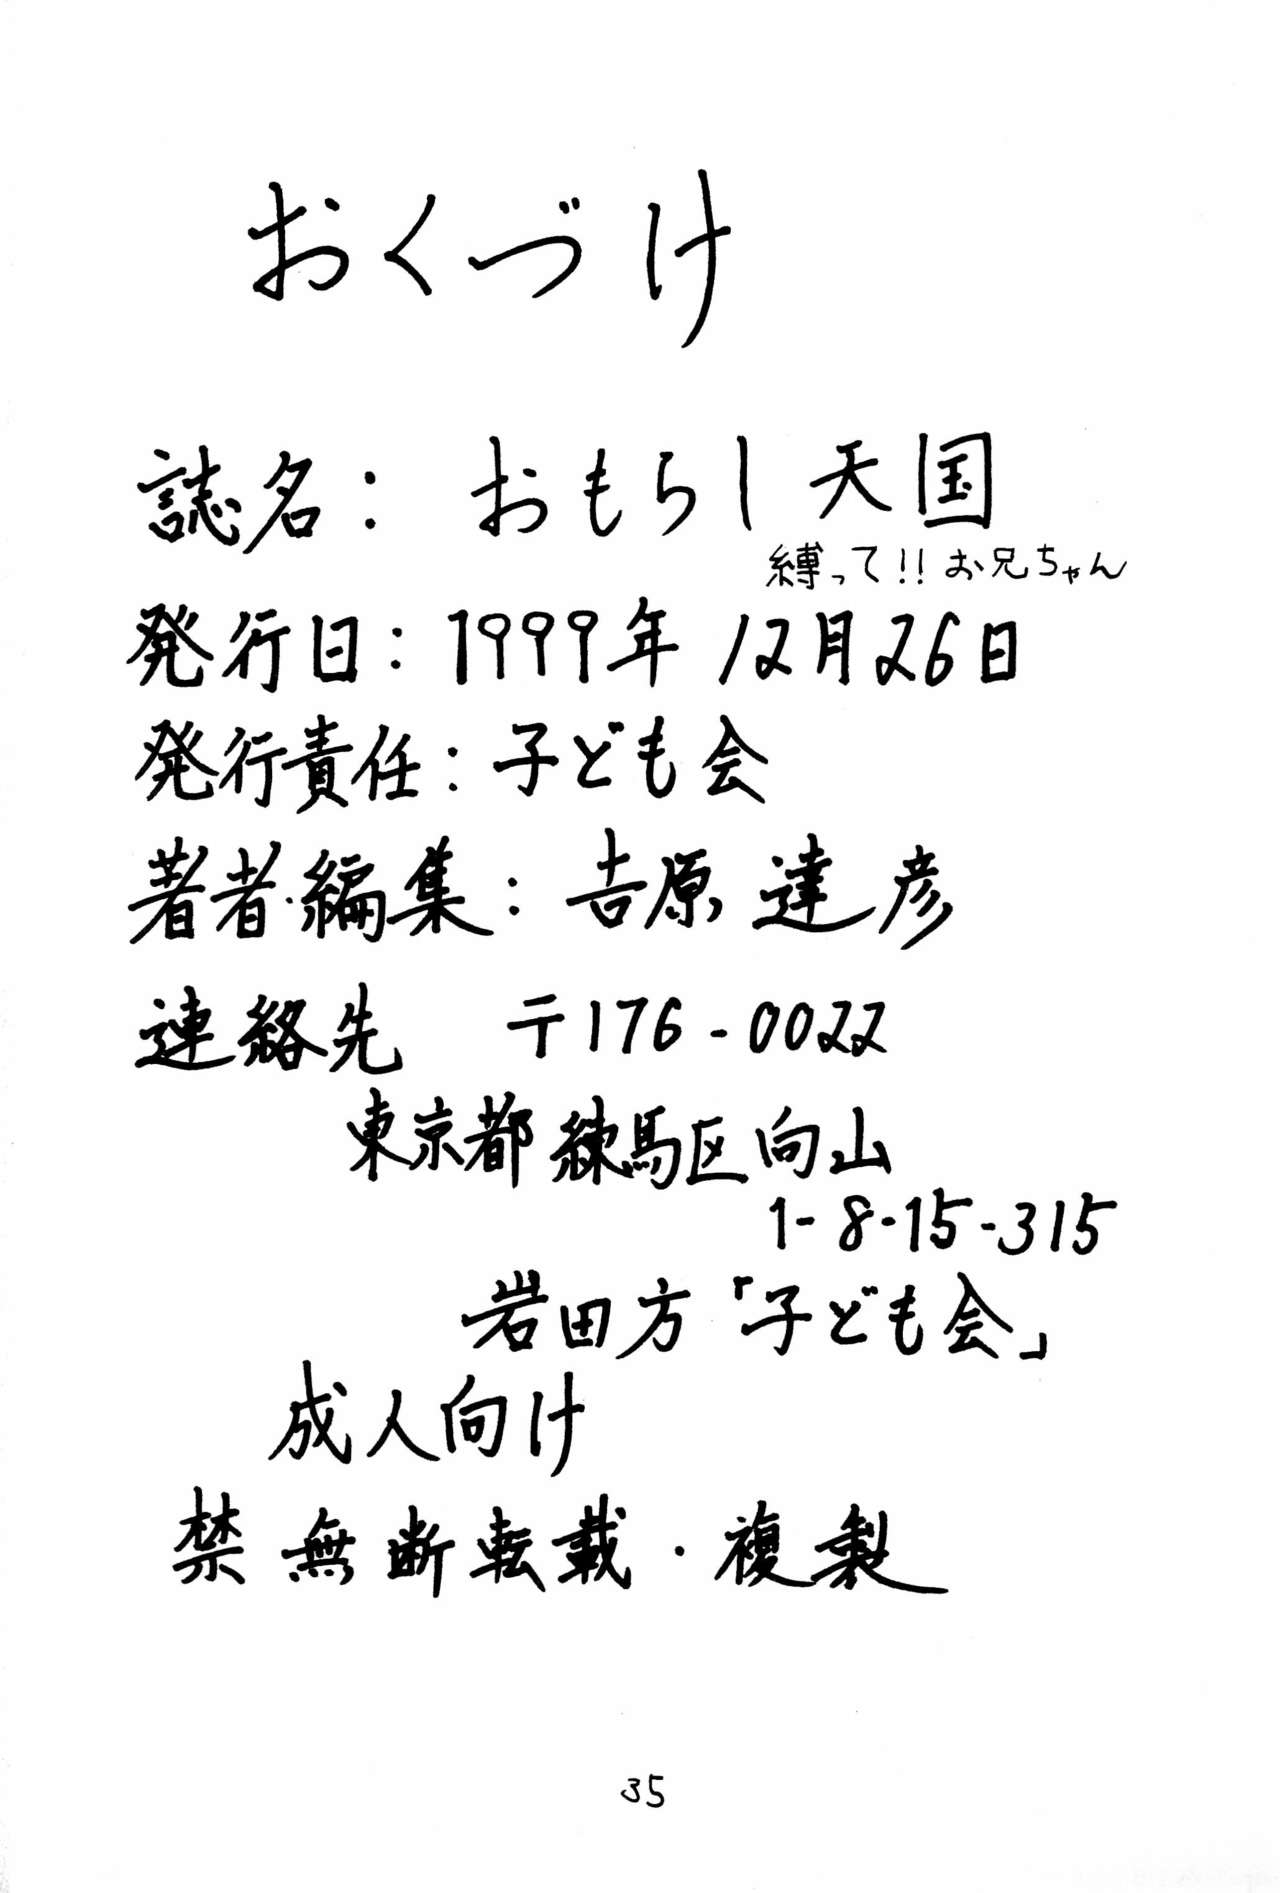 おくづけ
誌名：おもらし天国
縛って!!お兄ちゃん
発行日：1999年12月26日
発行責任：子ども会
著者・編集：吉原達彦
連絡先 〒176-0022
東京都練馬区向山
1-8-15-315
岩田方「子ども会」
成人向け
禁無断転載・複製
35